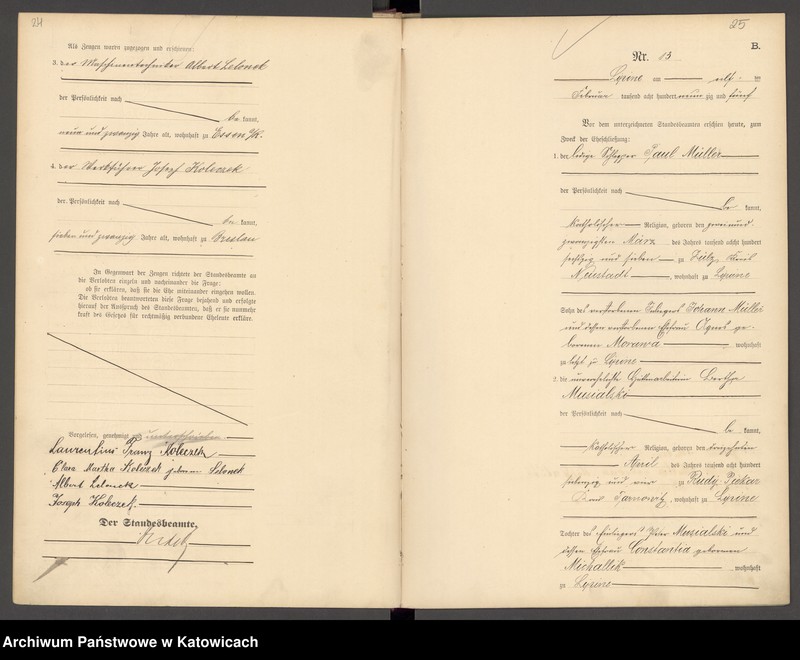 24
Als Zeugen waren zugezogen und erschienen:
3. der Maschinentechniker Albert Zelonek
der Persönlichkeit nach
be kannt,
neun und zwanzig Jahre alt, wohnhaft zu Essen a/R.
4. der Werkführer Josef Koleczek
der Persönlichkeit nach
be kannt,
sieben und zwanzig Jahre alt, wohnhaft zu Breslau
In Gegenwart der Zeugen richtete der Standesbeamte an
die Verlobten einzeln und nacheinander die Frage:
ob sie erklären, daß sie die Ehe miteinander eingehen wollen.
Die Verlobten beantworteten diese Frage bejahend und erfolgte
hierauf der Ausspruch des Standesbeamten, daß er sie nunmehr
kraft des Gesetzes für rechtmäßig verbundene Eheleute erkläre.
Vorgelesen, genehmigt und unterschrieben
Laurentius Franz Koleczek
Clara Martha Koleczek geborene Zelonek
Albert Zelonek
Joseph Koleczek.
Der Standesbeamte,
25
B.
Nr. 13
Lipine am elf ten
Februar tausend acht hundert neun zig und fünf
Vor dem unterzeichneten Standesbeamten erschien heute, zum
Zweck der Eheschließung:
1. der ledige Schlepper Paul Müller
der Persönlichkeit nach
be kannt,
katholischer Religion, geboren den zwei und
zwanzigsten März des Jahres tausend acht hundert
sechszig und sieben zu Zülz, Kreis
Neustadt, wohnhaft zu Lipine
Sohn des verstorbenen Johann Müller
und dessen verstorbenen Ehefrau Agnes ge-
borenen Morawa wohnhaft
zuletzt zu Lipine
2. die unverehelichte Hüttenarbeiterin Bertha
Musialski
der Persönlichkeit nach
be kannt,
katholischer Religion, geboren den dreizehnten
April des Jahres tausend acht hundert
siebenzig und vier zu Rudy-Piekar
Kreis Tarnowitz, wohnhaft zu Lipine
Tochter des Einliegers Peter Musialski und
dessen Ehefrau Constantia geborenen
Michallik wohnhaft
zu Lipine
Archiwum Państwowe w Katowicach